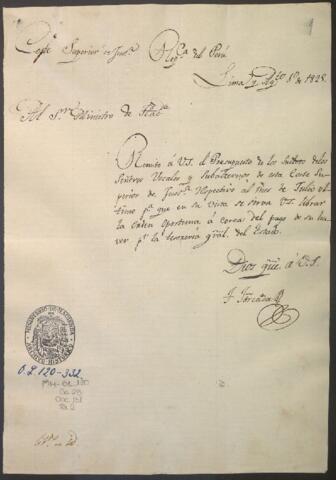 Corte Superior de Just.a Rep.ca del Perú
Lima Ag.to 1º de 1828.
Al S.or Ministro de Hac.da
Remito á VS. el Presupuesto de los Sueldos de los
Señores Vocales y Subalternos de esta Corte Su
perior de Just.a respectivo al mes de Julio úl
timo p.a que en su vista se sirva VS. librar
la orden oportuna á cerca del pago de su ha
ver p.r la Tesorería gral. del Estado.
Dios gũe. á V.S.
MINISTERIO DE HACIENDA
ARCHIVO HISTORICO
O.L. 120-332
MH-OL 120
Ca. 23
Doc. 151